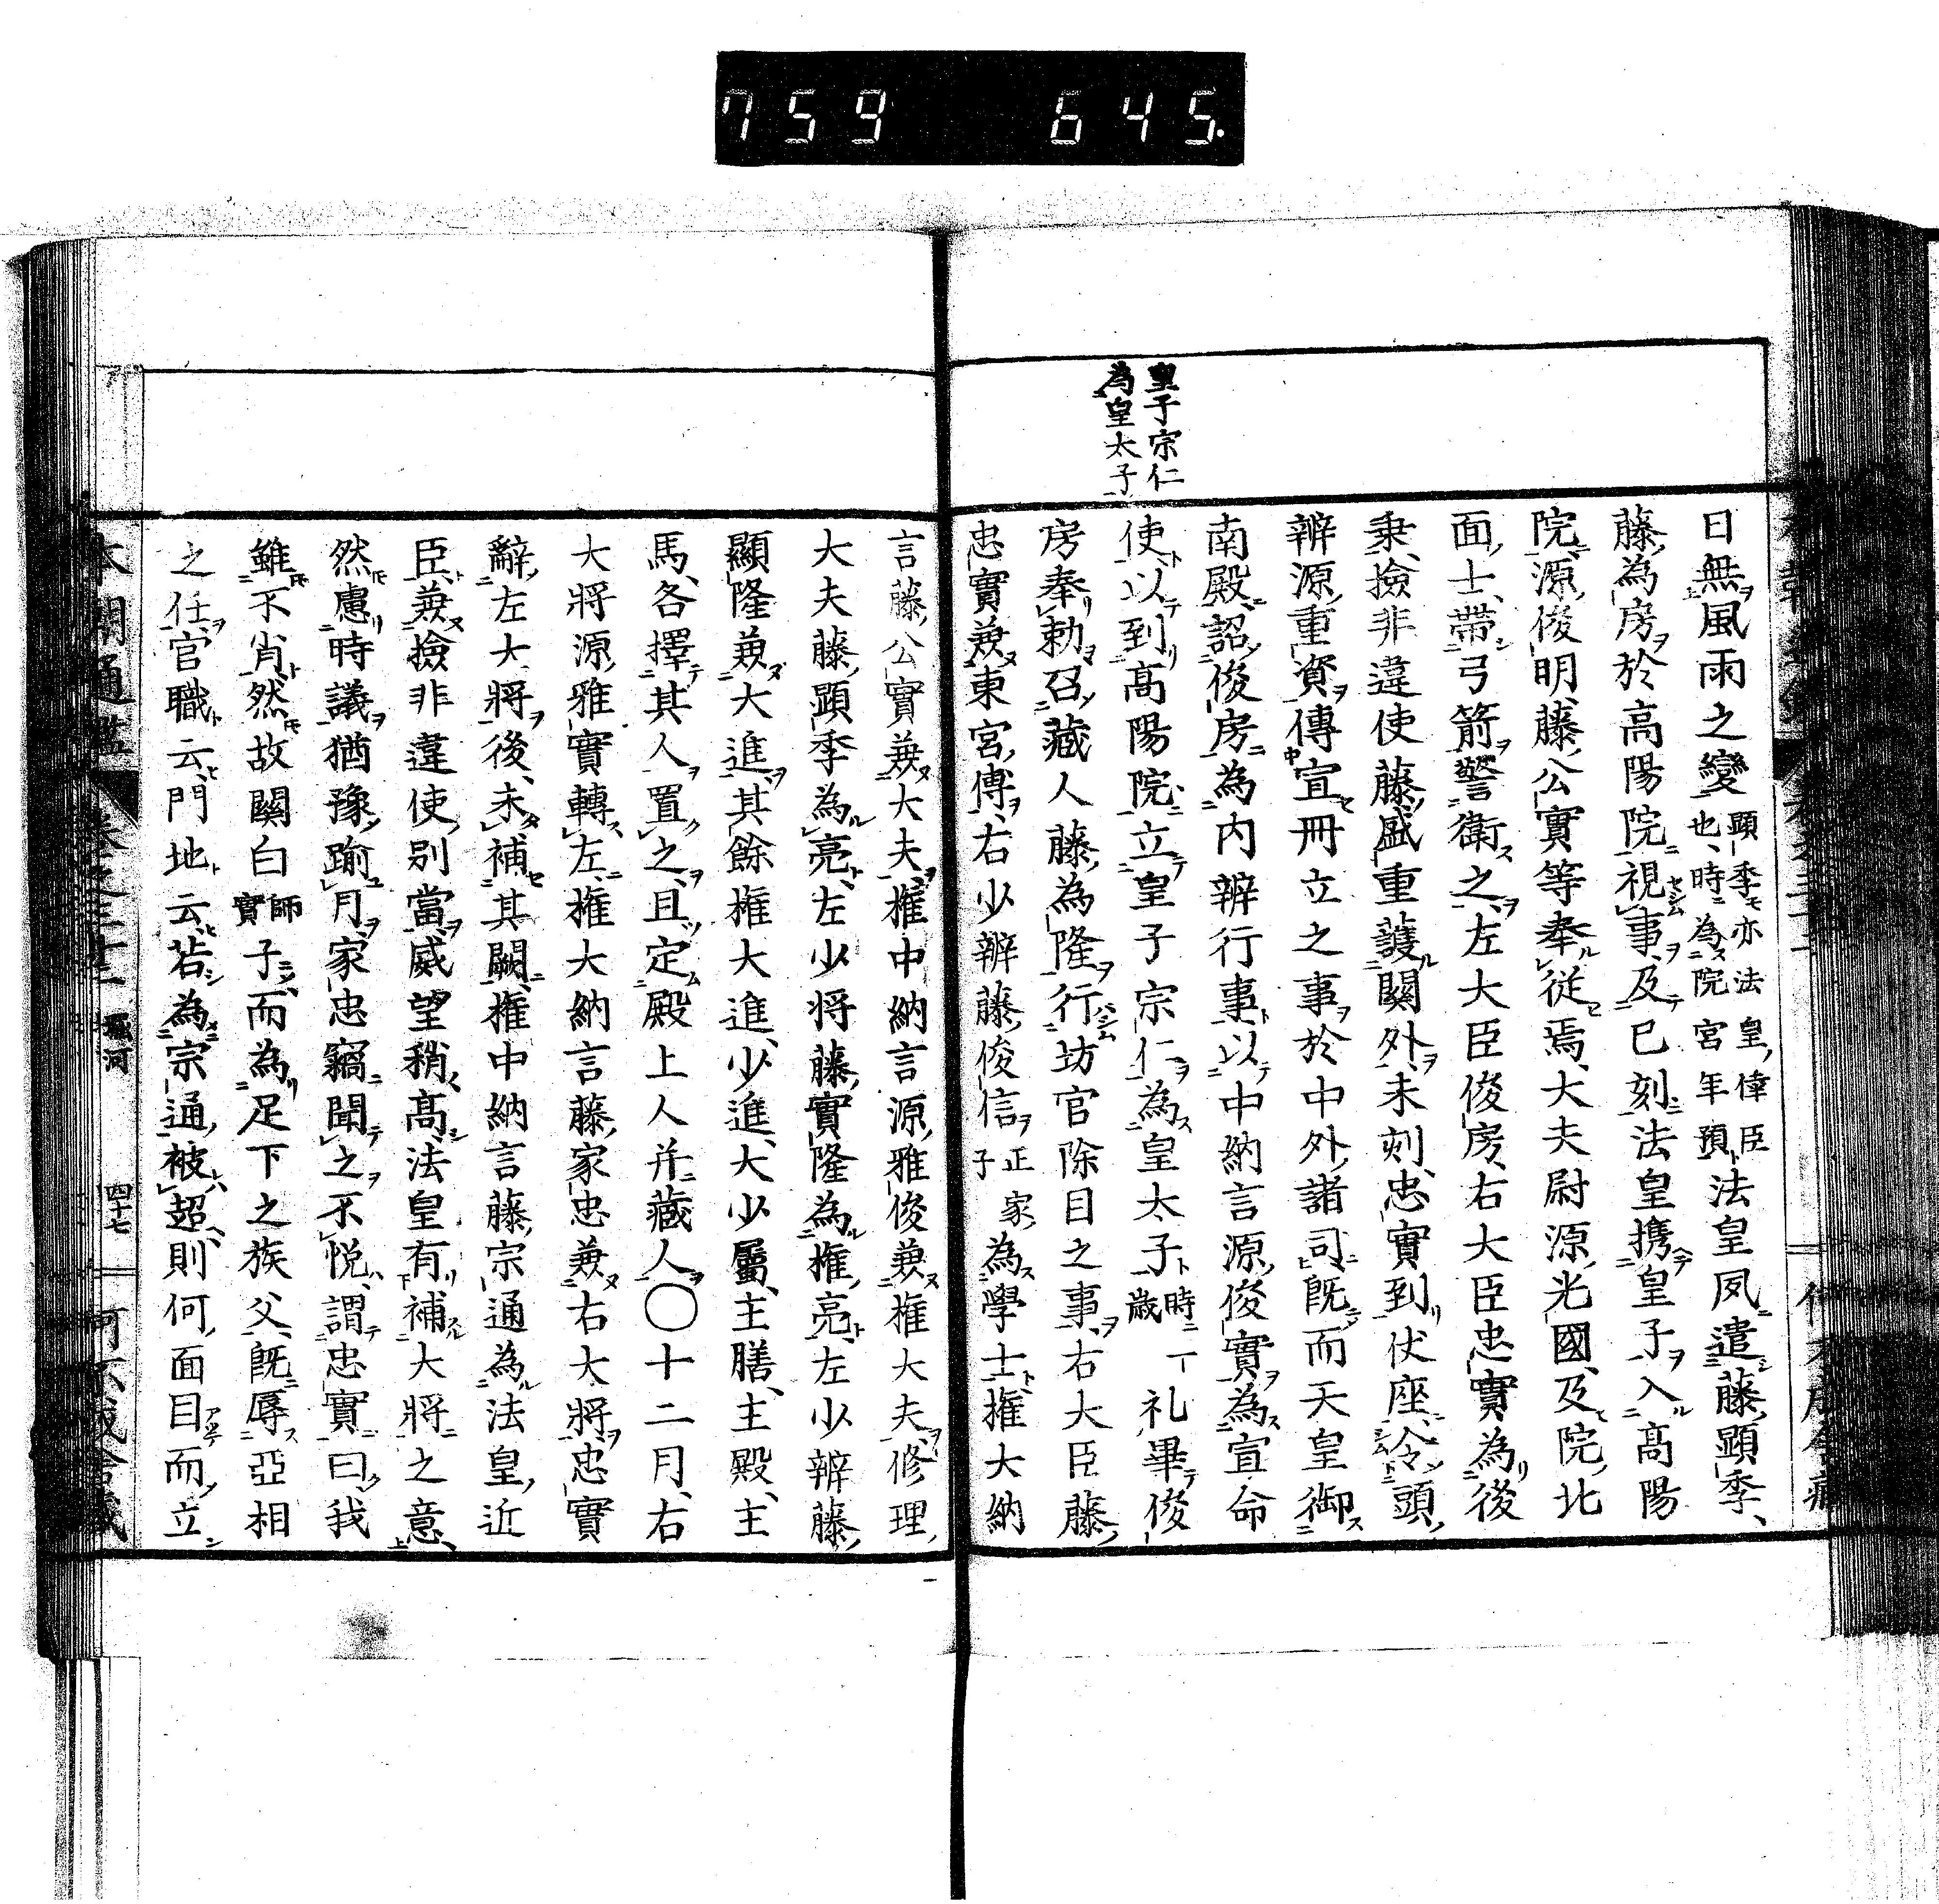 759 645.
皇子宗仁
為皇太子
日無風雨之變顕季亦法皇倖臣也時為院宮年預法皇夙遣藤顕季
藤為房於高陽院視事及巳刻法皇携皇子入高陽
院源俊明藤公實等奉従焉大夫尉源光國及院北
面士帯弓箭警衛之左大臣俊房右大臣忠實為後
乗撿非違使藤盛重護關外未刻忠實到伏座令頭
辨源重資傳宣冊立之事於中外諸司既而天皇御
南殿詔俊房為内辨行事以中納言源俊實為宣命
使以到高陽院立皇子宗仁為皇太子時一歳礼畢俊
房奉勅召藏人藤為隆行坊官除目之事右大臣藤
忠實兼東宮傅右少辨藤俊信正家子為學士權大納
言藤公實兼大夫權中納言源雅俊兼權大夫修理
大夫藤顕季為亮左少将藤實隆為權亮左少辨藤
顯隆兼大進其餘權大進少進大少屬主膳主殿主
馬各擇其人置之且定殿上人并藏人〇十二月右
大将源雅實轉左權大納言藤家忠兼右大将忠實
辭左大将後未補其闕權中納言藤宗通為法皇近
臣兼撿非違使別當威望稍高法皇有補大将之意
然慮時議猶豫踰月家忠竊聞之不悦謂忠實曰我
雖不肖然故關白師實子而為足下之族父既辱亞相
之任官職云門地云若為宗通被超則何面目而立
本朝通鑑 堀河 四十七